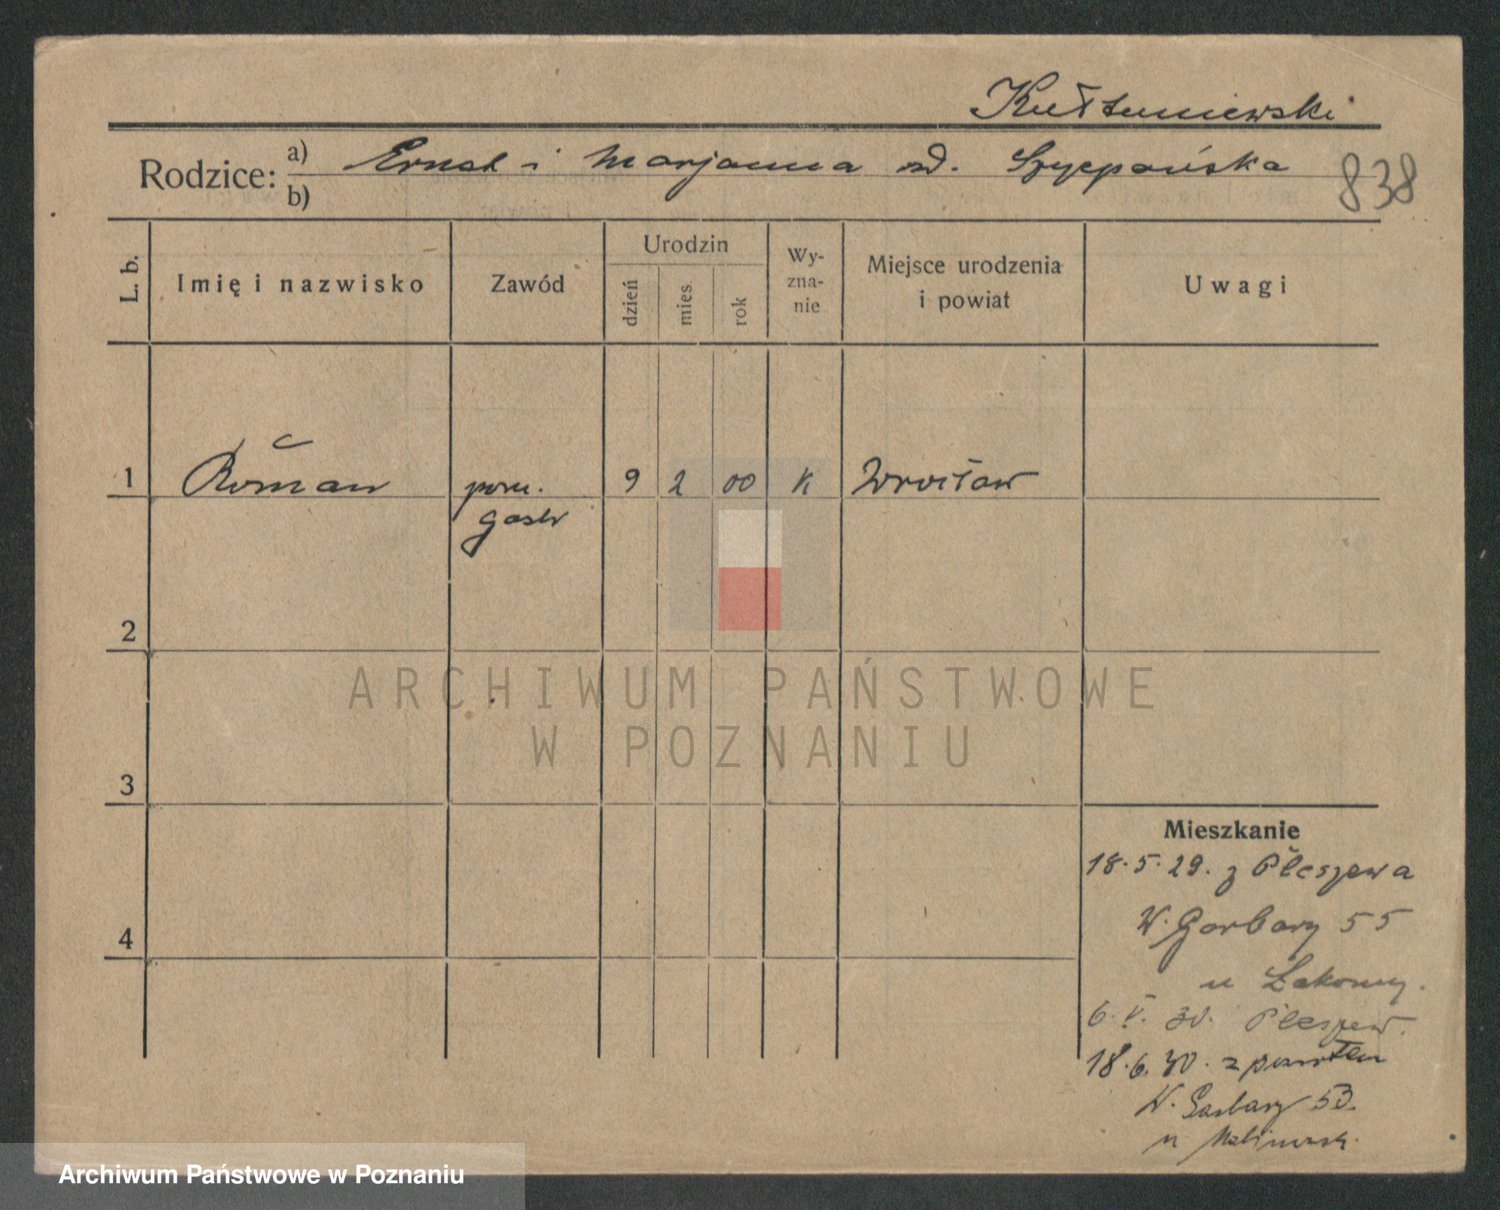 Kułtuniewski
Rodzice: a) Ernst i Marjanna zd. Szczepańska
b)
838
L. b.
Imię i nazwisko
Zawód
Urodzin
dzień
mies.
rok
Wy-
zna-
nie
Miejsce urodzenia
i powiat
Uwagi
1 Roman pom. 9 2 00 K Wrocław
gastr
2
3
4
ARCHIWUM PAŃSTWOWE
W POZNANIU
Mieszkanie
18.5.29. z Pleszewa
W. Garbary 55
u
6.V.30. Pleszew.
18.6.30. z powrotem
W. Garbary 53.
u
Archiwum Państwowe w Poznaniu